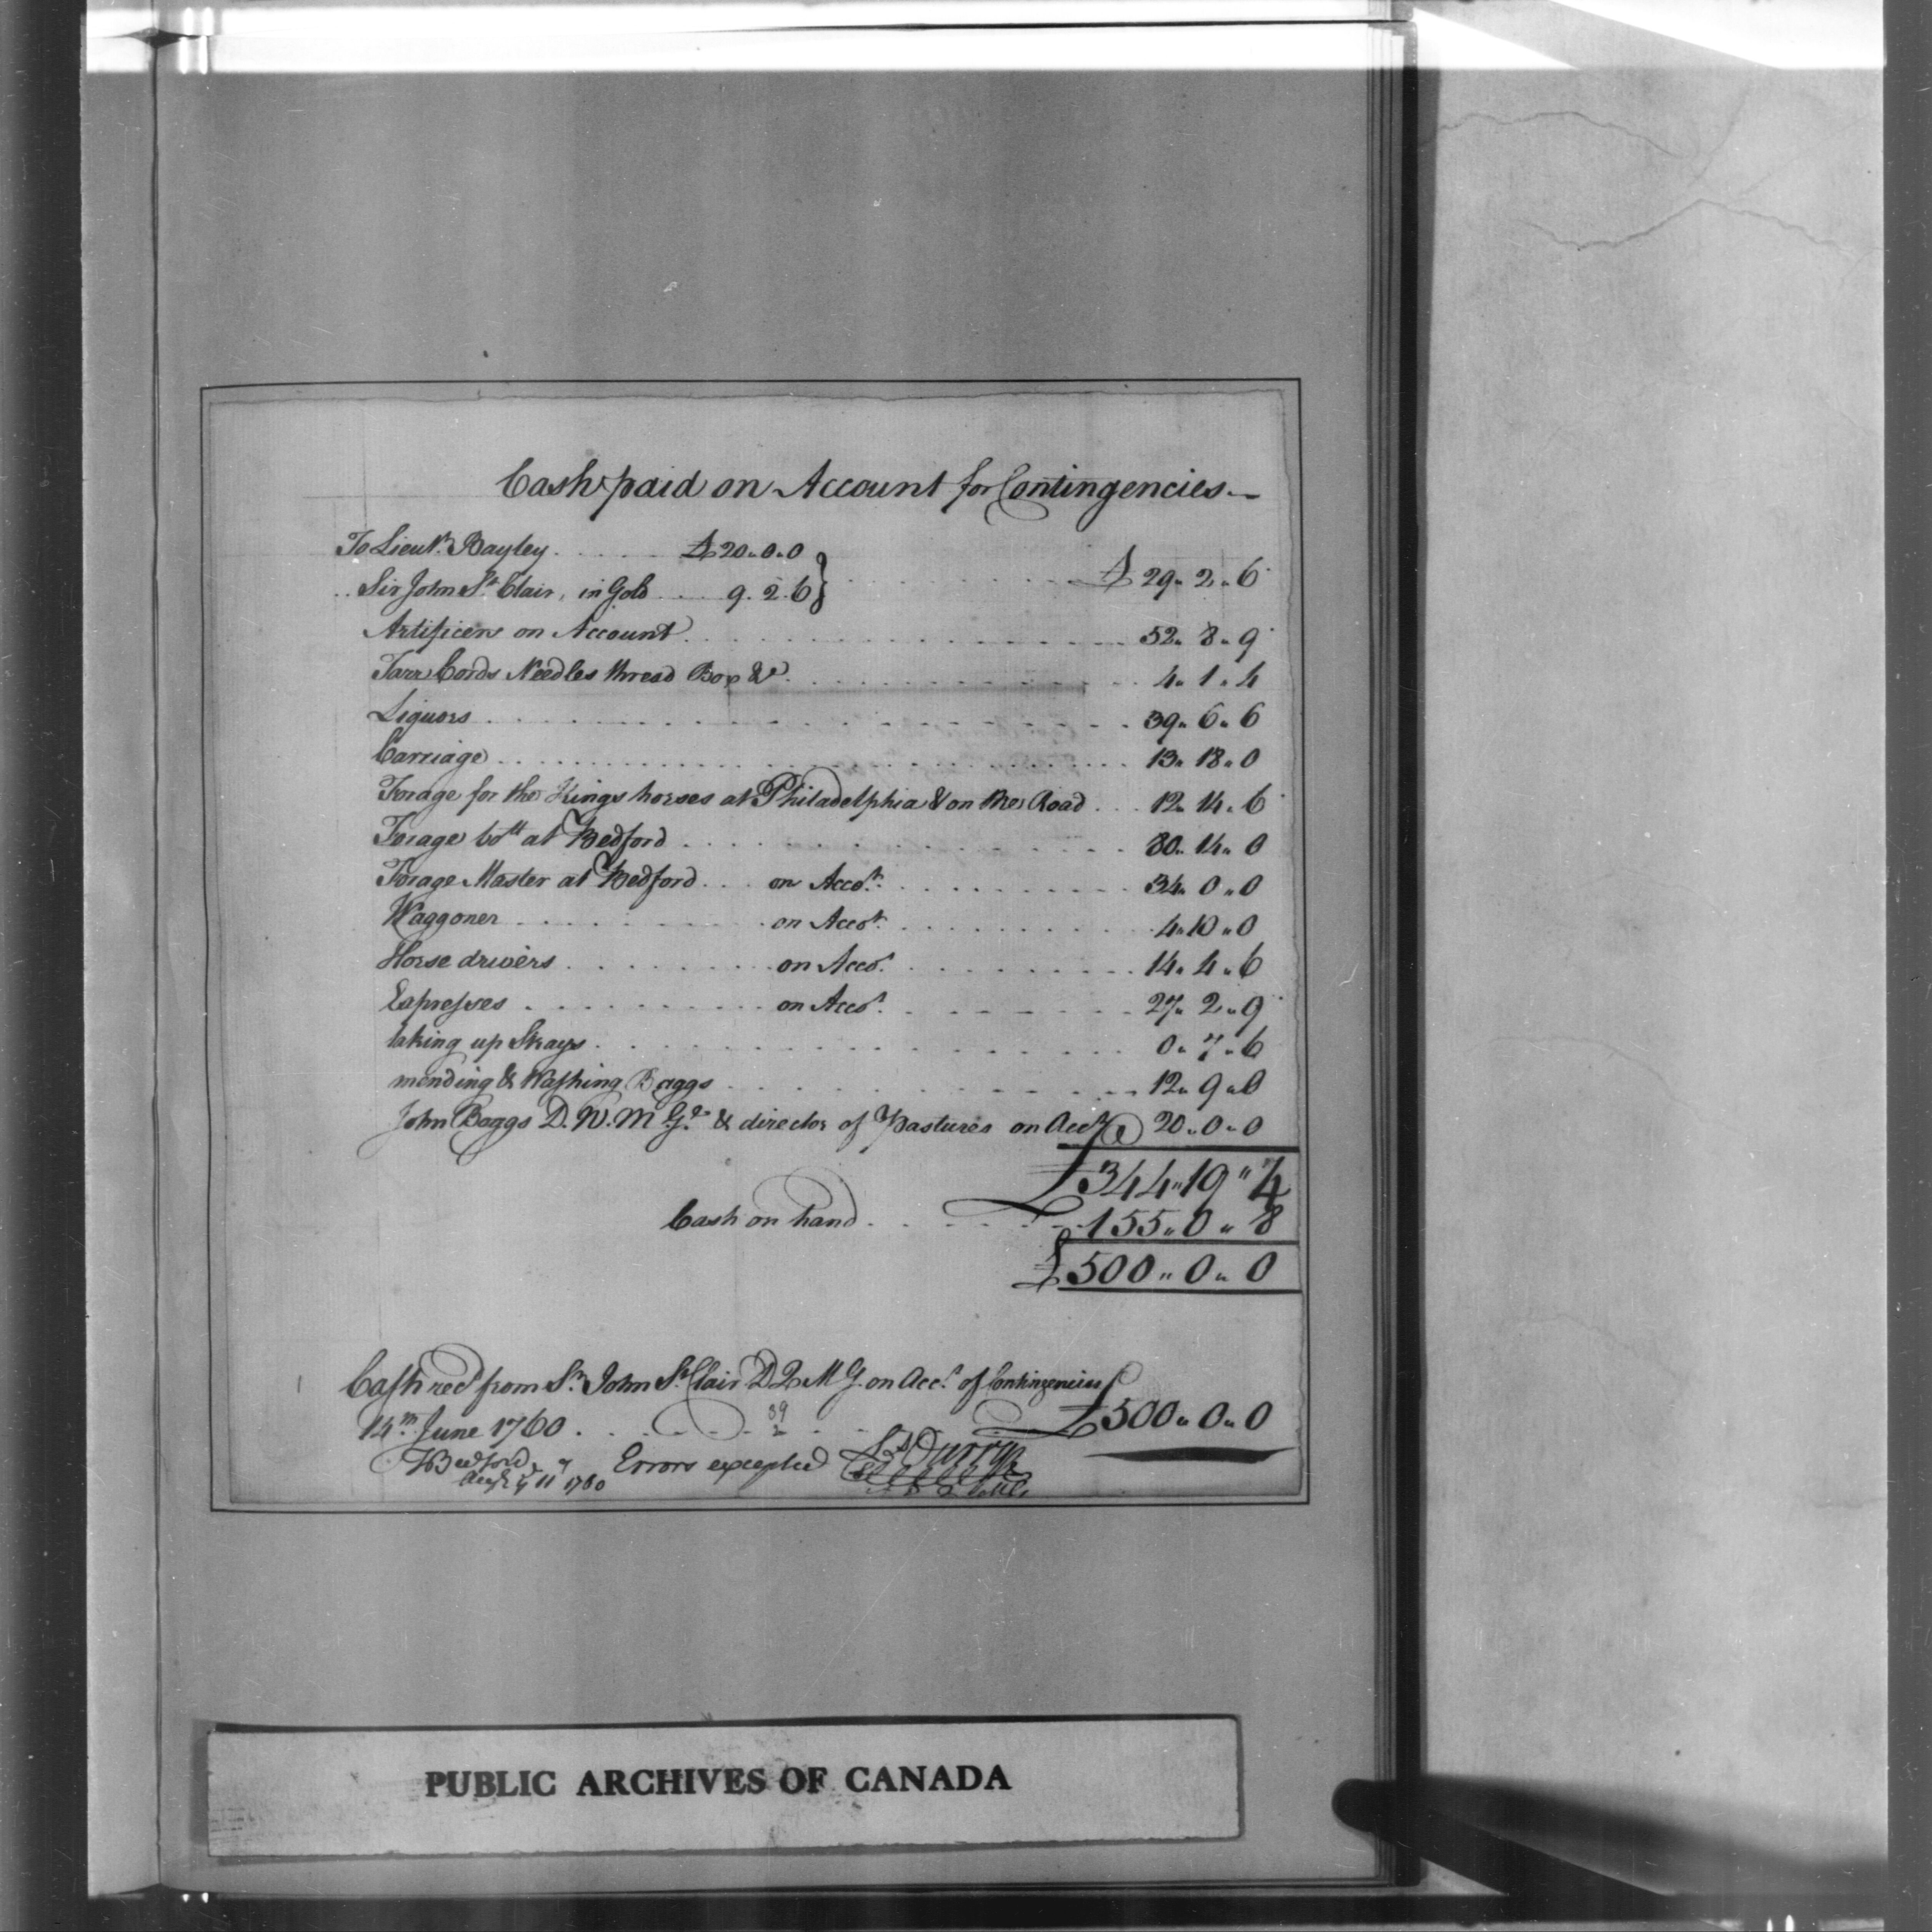 Cash paid on Account for Contingencies
To Lieut. Bayley . . . . . £20..0..0
.. Sir John St. Clair, in Gold .... 9.2.6 } . . . . . £29..2..6
Artificers on Account . . . . . 52..8..9
Tarr Cords Needles thread Box &c. . . . . 4..1..4
Liquors . . . . . 39..6..6
Carriage . . . . . 13..18..0
Forage for the Kings horses at Philadelphia & on the Road . . . 12..14..6
Forage bott at Bedford . . . . . 80..14..0
Forage Master at Bedford . . . on Acco.t . . . . . 34..0..0
Waggoner . . . . . on Acco.t . . . . . 4..10..0
Horse drivers . . . . . on Acco.t . . . . . 14..4..6
Expresses . . . . . on Acco.t . . . . . 27..2..9
taking up Strays . . . . . 0..7..6
mending & Washing Baggs . . . . . 12..9..0
John Baggs D. W. M. Gl. & director of Pastures on Acct 20..0..0
£344..19..4
Cash on hand . . . . . 155..0..8
£500..0..0
Cash recd from Sr. John St Clair D Q M G. on Acc.t of Contingencies
14th June 1760 . . . . . £500..0..0
39
2
Bedford Errors excepted
Augst 11 1760
PUBLIC ARCHIVES OF CANADA